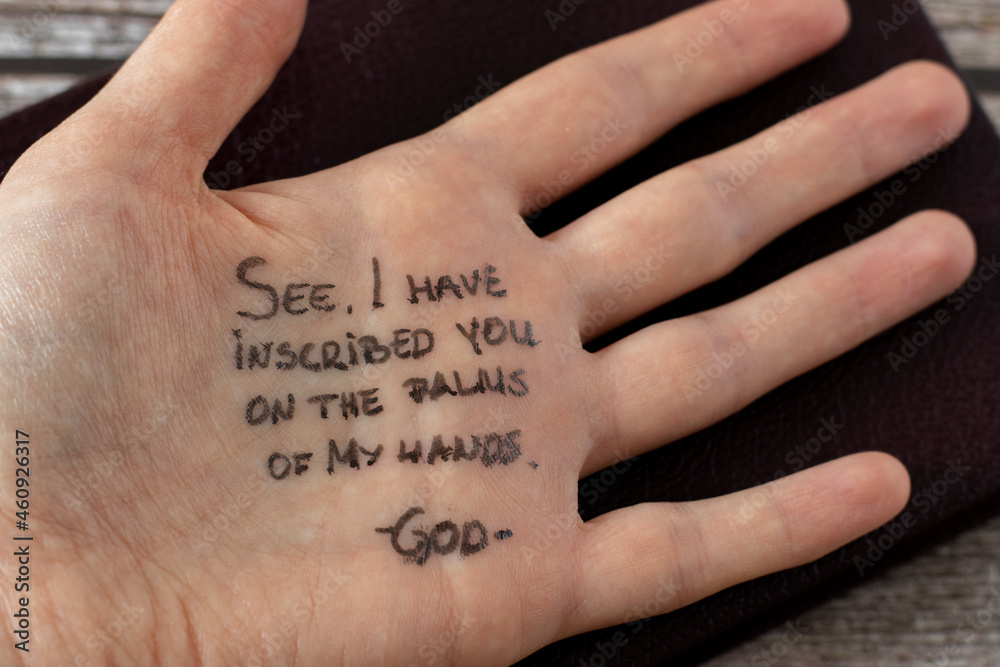 SEE, I HAVE
INSCRIBED YOU
ON THE PALMS
OF MY HANDS.
-GOD-
Adobe Stock | #460926317